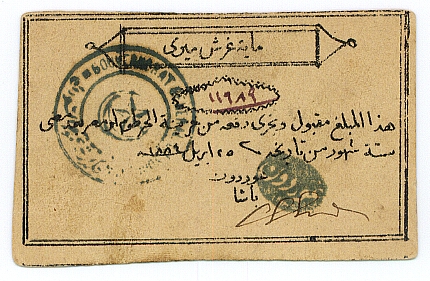 ماية غرش ميرى
هذا المبلغ مقبول ويجرى دفعه من خزينة الخرطوم او مصر بعد مضى
ستة شهور من تاريخه ٢٥ ابريل ١٨٨٤
غوردون
باشا